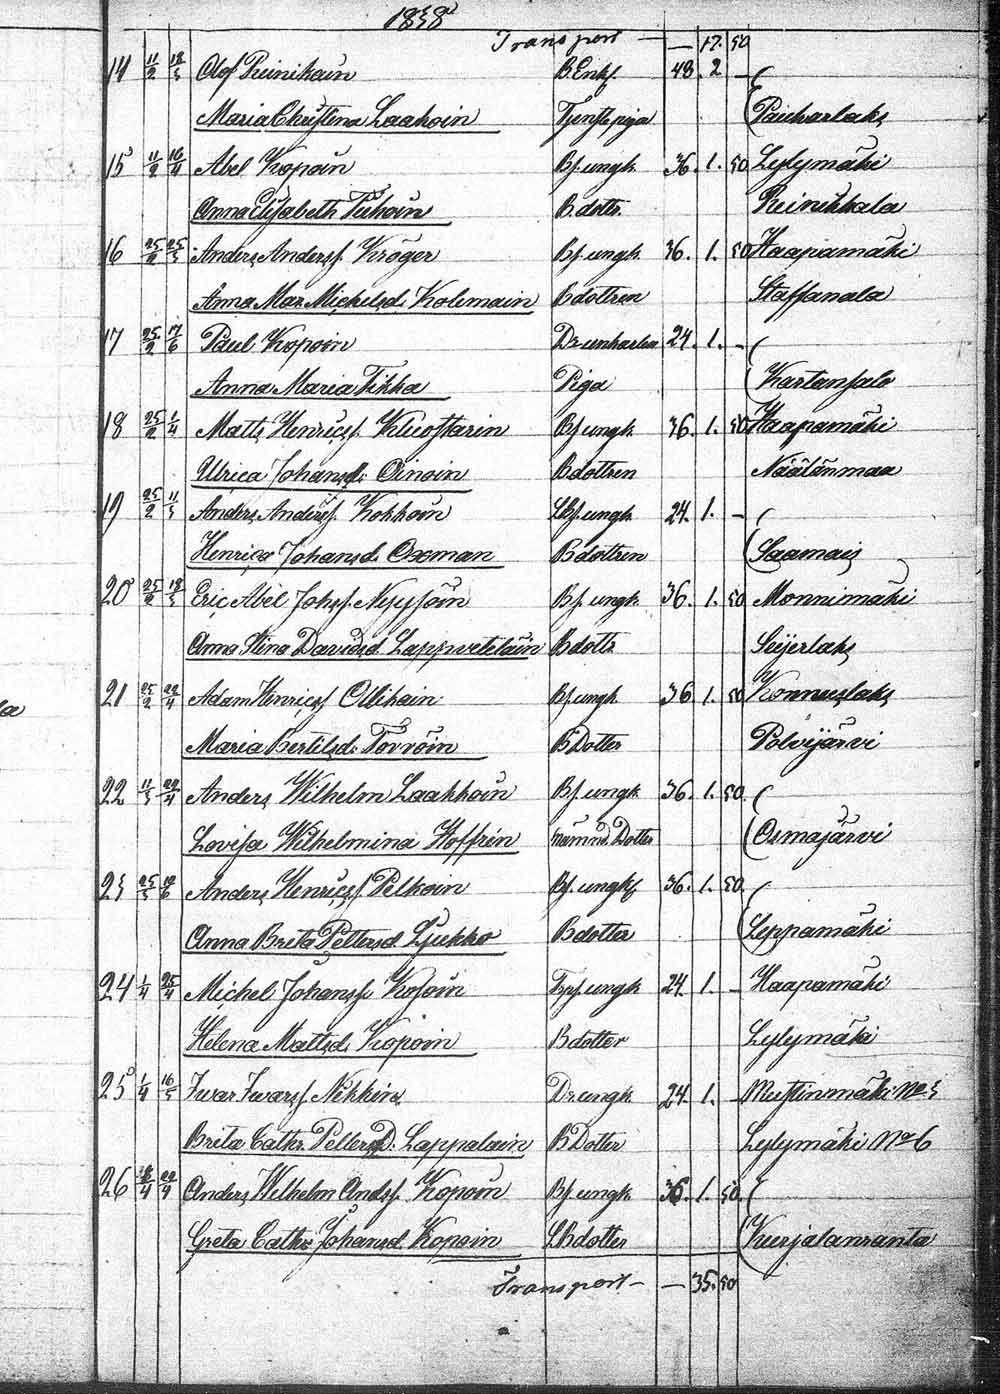 1838
Transport — — 17. 50
14 11/2 18/3 Olof Reinikain B.Enkl. 48. 2 —
Maria Christina Laakoin Tjenstepiga Paukarlaks
15 11/2 16/4 Abel Kopoin Bf. ungk. 36. 1. 50 Lylymäki
Anna Elisabeth Tuhoin B. dottr. Reinikkala
16 25/2 25/3 Anders Andersf. Kröger Bf. ungk. 36. 1. 50 Haapamäki
Anna Mar. Michelsd. Kolemain Bdottren Staffanala
17 25/2 17/6 Paul Kopoin 24. 1. —
Anna Maria Tikka Piga Kartansalo
18 25/2 1/4 Matts Henricsf. Kluostarin Bf. ungk. 36. 1. 50 Haapamäki
Ulrica Johansd. Oinoin Bdottren Näätänmaa
19 25/2 11/3 Anders Andersf. Kokkoin Lbf. ungk. 24. 1. —
Henrica Johansd. Oxman Bdottren Saamais
20 25/2 18/3 Eric Abel Johsf. Nyyssöin Bf. ungk. 36. 1. 50 Monnimäki
Anna Stina Davidsd. Lappvetelain Bdottr. Seijerlaks
21 25/2 22/4 Adam Henricsf. Ollikain Bf. ungk. 36 1. 50 Konnuslaks
Maria Bertilsd. Torvoin BDotter Polvijärvi
22 11/3 22/4 Anders Wilhelm Laakkoin Bf. ungk. 36. 1. 50.
Lovisa Wilhelmina Hoffrén nämnd. Dotter Osmajärvi
23 25/3 Anders Henricsf. Pelkoin Bf. ungk. 36. 1. 50.
Anna Brita Pettersd. Ljukko Bdotter Leppamäki
24 1/4 25/4 Michel Johansf. Kosoin ungk 24. 1. — Haapamäki
Helena Mattsd. Kopoin Bdotter Lylymäki
25 1/4 16/5 Iwar Iwarsf. Nykkin Dr.ungk. 24. 1. — Mustinmäki No 3
Brita Cathr. PettersD. Lappalain BDotter Lylymäki No 6
26 18/4 22/4 Anders Wilhelm Andsf. Kopoin Bf. ungk. 36. 1. 50.
Greta Cathr. Johansd. Kopoin Lbdotter Kurjalanranta
Transport — — 35. 50